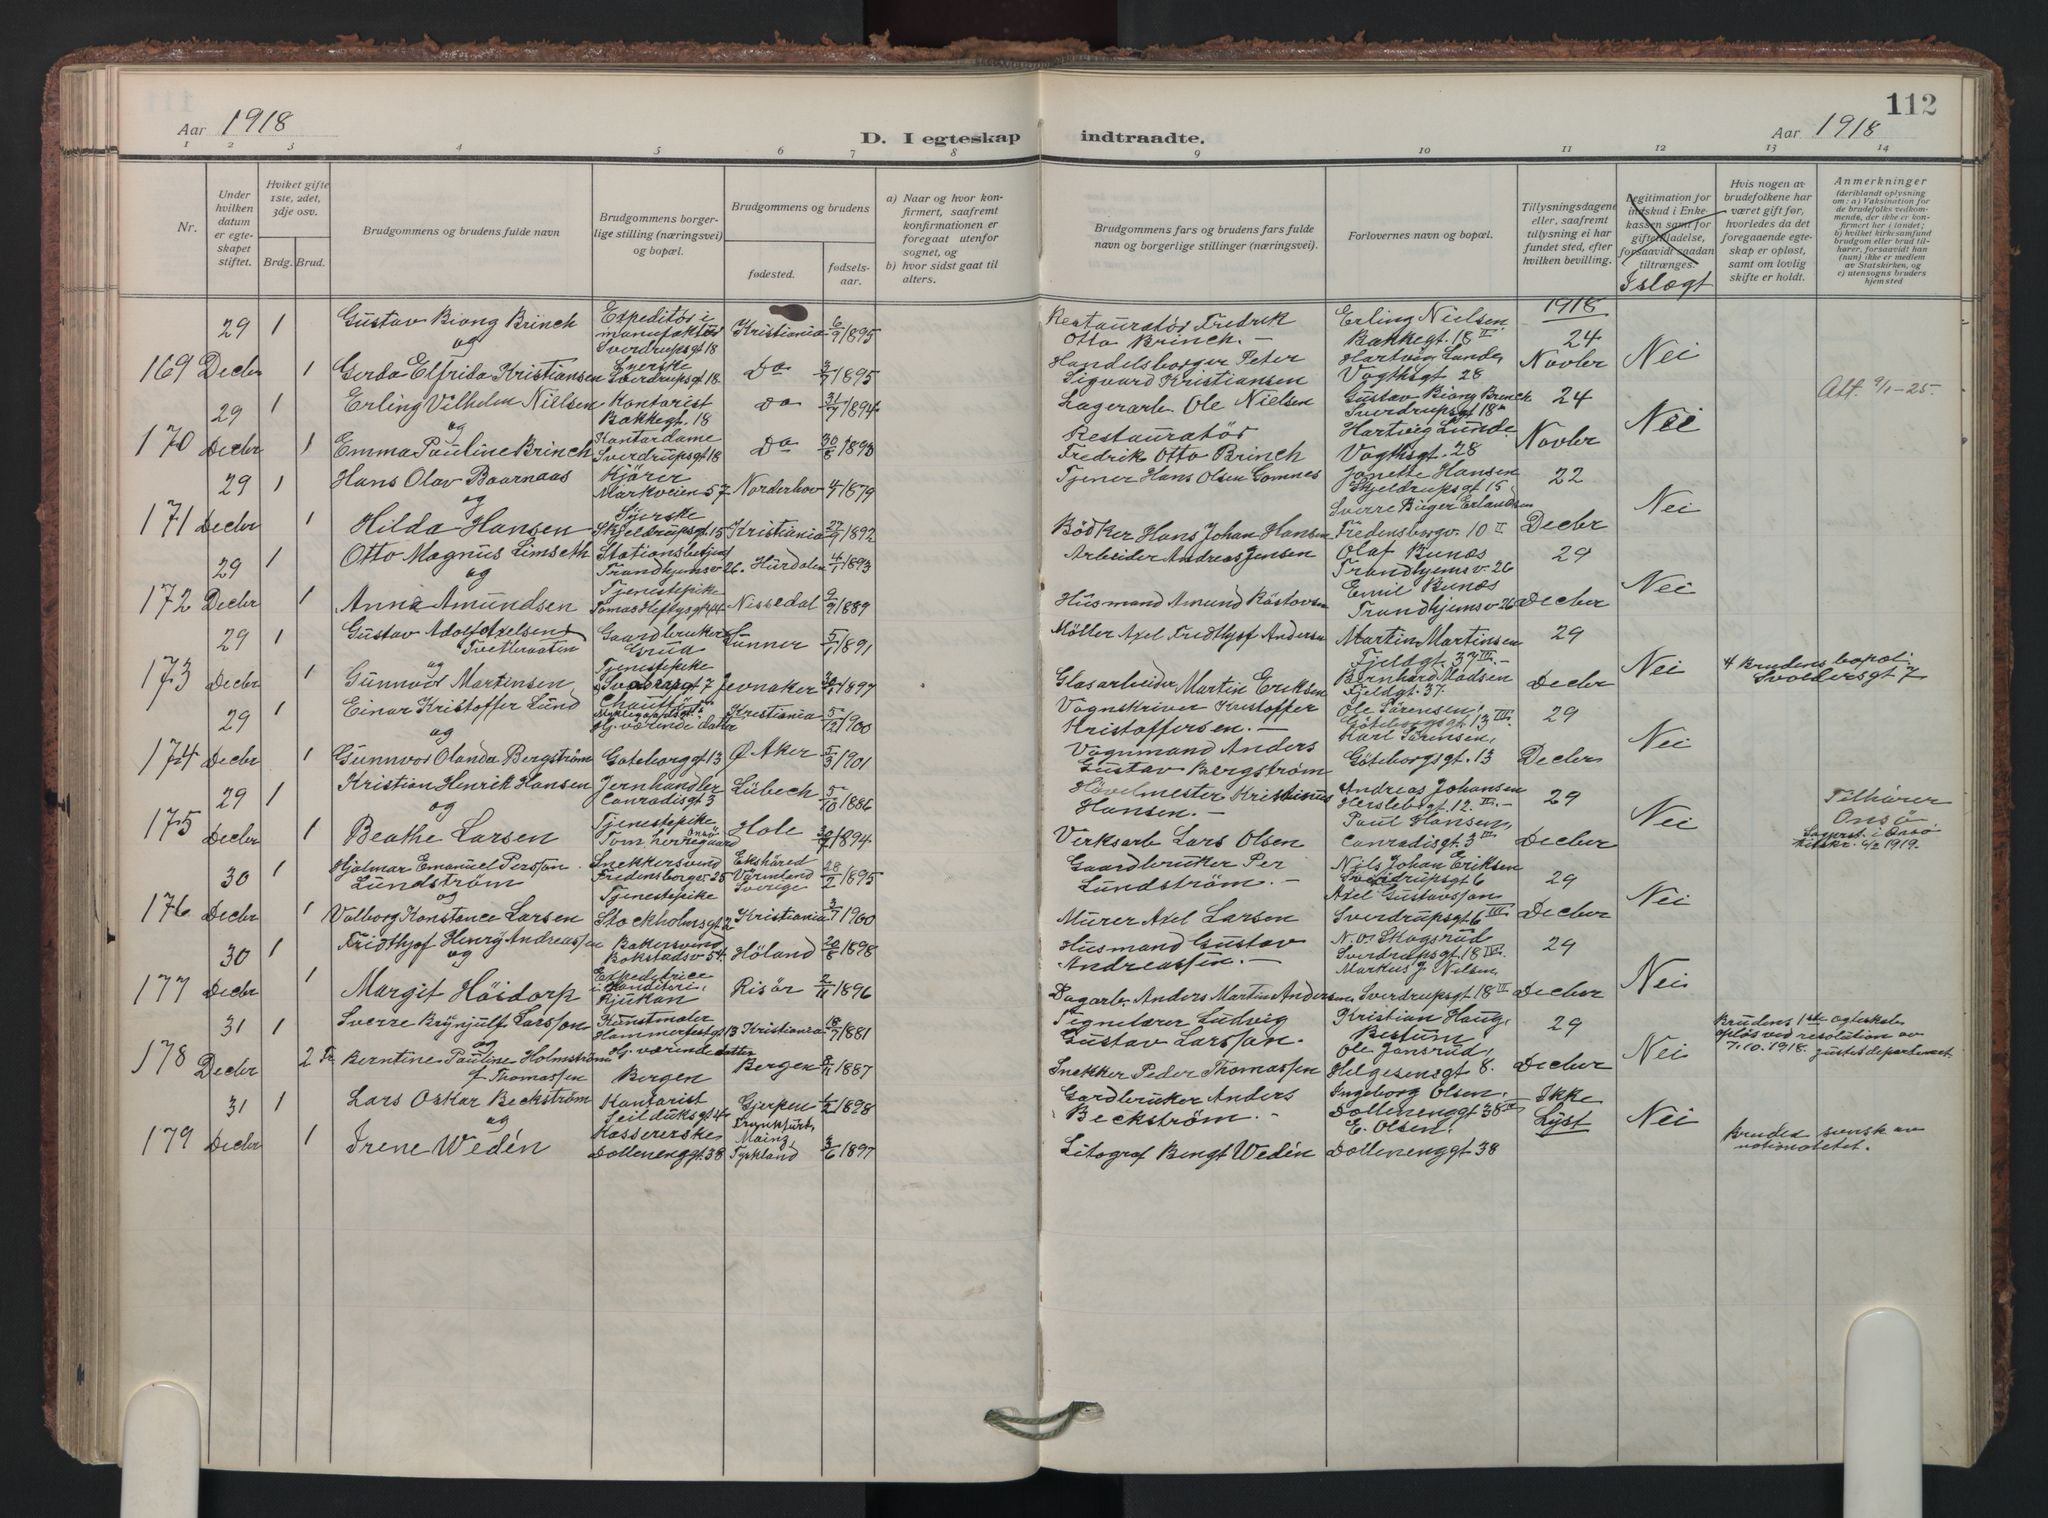 112
Aar 1918
D. I egteskap
indtraadte.
Aar 1918
1 2 3 4 5 6 7 8 9 10 11 12 13 14
Nr.
Under hvilken datum er egteskapet stiftet.
Hvilket gifte 1ste, 2det, 3dje osv.
Brdg. Brud.
Brudgommens og brudens fulde navn
Brudgommens borgerlige stilling (næringsvei) og bopæl.
Brudgommens og brudens
fødested.
fødselsaar.
a) Naar og hvor konfirmert, saafremt konfirmationen er foregaat utenfor sognet, og
b) hvor sidst gaat til alters.
Brudgommens fars og brudens fars fulde navn og borgerlige stillinger (næringsvei).
Forlovernes navn og bopæl.
Tillysningsdagene eller, saafremt tillysning ei har fundet sted, efter hvilken bevilling.
Legitimation for indskud i Enkekassen samt for giftetilladelse, forsaavidt saadan tiltrænges.
I slægt
Hvis nogen av brudefolkene har været gift før, hvorledes da det foregaaende egteskap er opløst, samt om lovlig skifte er holdt.
Anmerkninger
(deriblandt oplysning om: a) Vaksination for de brudefolks vedkommende, der ikke er konfirmert her i landet; b) hvilket kirkesamfund brudgom eller brud tilhører, forsaavidt han (hun) ikke er medlem av Statskirken, og c) utensogns bruders hjemsted
1918
169 29 Decbr 1 1
Gustav Biong Brinch
og
Gerda Elfrida Kristiansen
Expeditør i manufaktur Sverdrupsgt 18
Syerske Sverdrupsgt 18
Kristiania 6/9 1895
Do 3/7 1895
Restauratør Fredrik Otto Brinch.
Handelsborger Peter Sigvard Kristiansen
Erling Nielsen Bakkegt. 18 II
Hartvig Lunde, Vogtsgt 28
24 Novbr
Nei
170 29 Decbr 1 1
Erling Vilhelm Nielsen
og
Emma Pauline Brinch
Kontorist Bakkegt. 18
Kontordame Sverdrupsgt 18
Do 31/7 1894
Do 30/8 1893
Lagerarb. Ole Nielsen
Restauratør Fredrik Otto Brinch
Gustav Biong Brinch Sverdrupsgt 18
Hartvig Lunde Vogtsgt. 28
24 Novbr
Nei
Att. 9/1-25.
171 29 Decbr 1 1
Hans Olav Baarnaas
og
Hilda Hansen
Kjører Markveien 57
Syerske Skjeldrupsgt. 15
Norderhov 4/7 1879
Kristiania 27/9 1892
Tjener Hans Olsen Gomnes
Bödker Hans Johan Hansen
Janette Hansen Skjeldrupsgt 15
Sverre Birger Erlandsen Fredensborgv. 10 II
22 Decbr
Nei
172 29 Decbr 1 1
Otto Magnus Limseth
og
Anna Amundsen
Stationsbetjent Trondhjemsv 26.
Tjenestepike Tomas Heftysgt 44
Hurdalen 4/1 1893
Nissedal 9/9 1889
Arbeider Andreas Jensen
Husmand Amund Röstovsen
Olaf Bunæs Trondhjemsv. 26
Emil Bunæs Trondhjemsv 26
29 Decbr
Nei
173 29 Decbr 1
Gustav Adolf Axelsen Tvetteraaten
og
Gunnvor Martinsen
Gaardbruker Grua
Tjenestepike
Lunner 5/1 1891
Jevnaker 30/1 1897
Möller Axel Fredthjof Andersen
Glasarbeider Martin Eriksen
Martin Martinsen Fjeldgt. 37 III.
Bernhard Madsen Fjeldgt. 37.
29 Decbr
Nei
Brudens bopæl: Svoldersgt 7
174 29 Decbr 1
Einar Kristoffer Lund
og
Gunnvor Olanda Bergström
Chauffør
Hj. værende datter Göteborggt 13
Kristiania 5/12 1900
Ø Aker 5/3 1901
Vognskriver Kristoffer Kristoffersen.
Vognmand Anders Gustav Bergström
Ole Sörensen, Göteborgsgt. 13 III.
Karl Sörensen, Göteborgsgt. 13
29 Decbr
Nei
175 29 Decbr 1 1
Kristian Henrik Hansen
og
Beathe Larsen
Jernhandler Conradisgt 3
Tjenestepike Tom herregaard Onsö
Lübech 5/10 1886
Hole 30/7 1894
Hövelmester Kristinus Hansen.
Verksarb. Lars Olsen
Andreas Johansen Herslebsgt. 12. III.
Paul Hansen, Conradisgt. 3 III
29 Decbr
Nei
Tilhører Onsö
176 30 Decbr 1 1
Hjalmar Emanuel Persson Lundström
og
Valborg Konstance Larsen
Snekkersvend Fredensborgv 25
Tjenestepike Stockholmsgt 2
Ekshäred Värmland Sverige 28/2 1895
Kristiania 3/7 1900
Gaardbruker Per Lundström.
Murer Axel Larsen
Nils Johan Eriksen Sverdrupsgt 6
Axel Gustavsson Sverdrupsgt 6 III
29 Decbr
Nei
177 30 Decbr 1 1
Fridthjof Henry Andreassen
og
Margit Höidorp
Bakersvend Bokstadsv 54.
Expeditrice i Konditori, Rjukan
Höland 20/8 1898
Risör 2/11 1896
Husmand Gustav Andreassen.
Dagarb. Anders Martin Andersen
N. O. Skogsrud Sverdrupsgt. 18 IV.
Markus J. Nilsen, Sverdrupsgt 18 II
29 Decbr
Nei
178 31 Decbr 1 2 Fr
Sverre Brynjulf Larsson
og
Berntine Pauline Holmström f. Thomassen
Kunstmaler Hammerfestgt 13
Hj. værende datter Bergen
Kristiania 18/7 1881
Bergen 8/11 1887
Tegnelærer Ludvig Gustav Larsson.
Snekker Peder Thomassen
Kristian Haug, Bestum
Ole Jonsrud, Helgesensgt 8.
29 Decbr
Nei
Brudens 1ste egteskab opløst ved resolution av 7.10.1918. justisdepartementet
179 31 Decbr 1 1
Lars Oskar Beckström
og
Irene Wedén
Kontorist Seilduksgt 4
Kassererske Dællenenggt. 38
Gjerpen 6/2 1898
Frankfurt, Mainz, Tyskland 3/6 1897
Gardbruker Anders Beckström.
Litograf Bengt Wedén
Ingeborg Olsen, Dællenenggt 38
E. Olsen, Dællenenggt 38
Ikke Lyst
Nei
Bruden svensk av nationalitet.